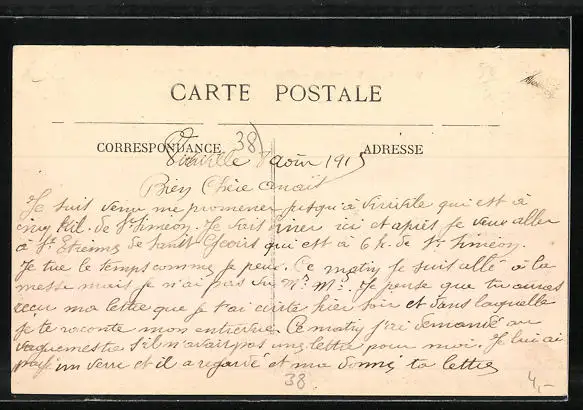 CARTE POSTALE
CORRESPONDANCE
38)
ADRESSE
Viriville 8 août 1915
Bien Chère Anaïs
Je suis venu me promener jusqu'à Viriville qui est à
cinq kil. de St Siméon. Je vais diner ici et après je veux aller
à St Etienne de Saint Geoirs qui est à 6 k. de St Siméon.
Je tue le temps comme je peux. Ce matin je suis allé à la
messe mais je n'ai pas vu Mr M. Je pense que tu auras
reçu ma lettre que je t'ai écrite hier soir et dans laquelle
je te raconte mon entrevue. Ce matin j'ai demandé au
vaguemestre s'il n'avait pas une lettre pour moi. Je lui ai
payé un verre et il a regardé et ma donné ta lettre
38.
4,-